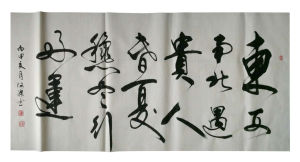 東西
南北遇
貴人
春夏
秋冬行
好運
丙申夏月